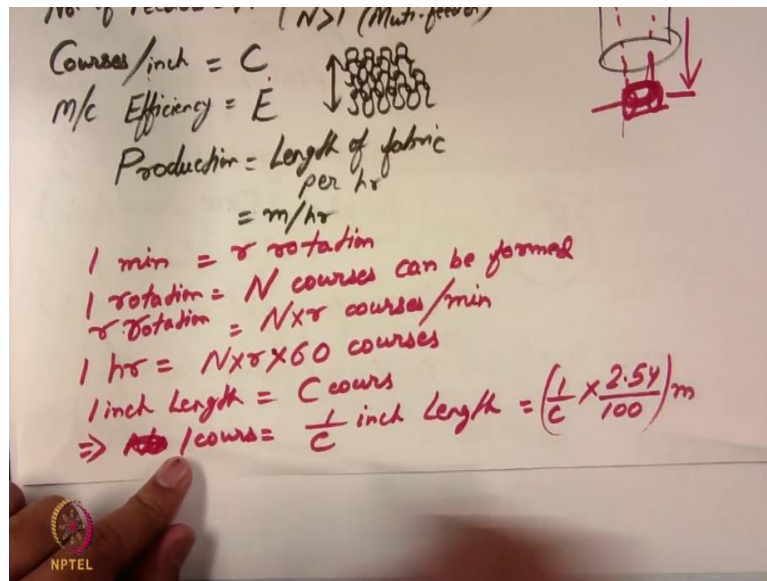 No. of feeder = N (N>1 (Multi-feeder)
Courses/inch = C
M/c Efficiency = E
Production = Length of fabric
per hr
= m/hr
1 min = r rotation
1 rotation = N courses can be formed
r rotation = N×r courses/min
1 hr = N×r×60 courses
1 inch Length = C cours
⇒ 1 cours = 1/C inch Length = (1/C × 2.54/100) m
NPTEL